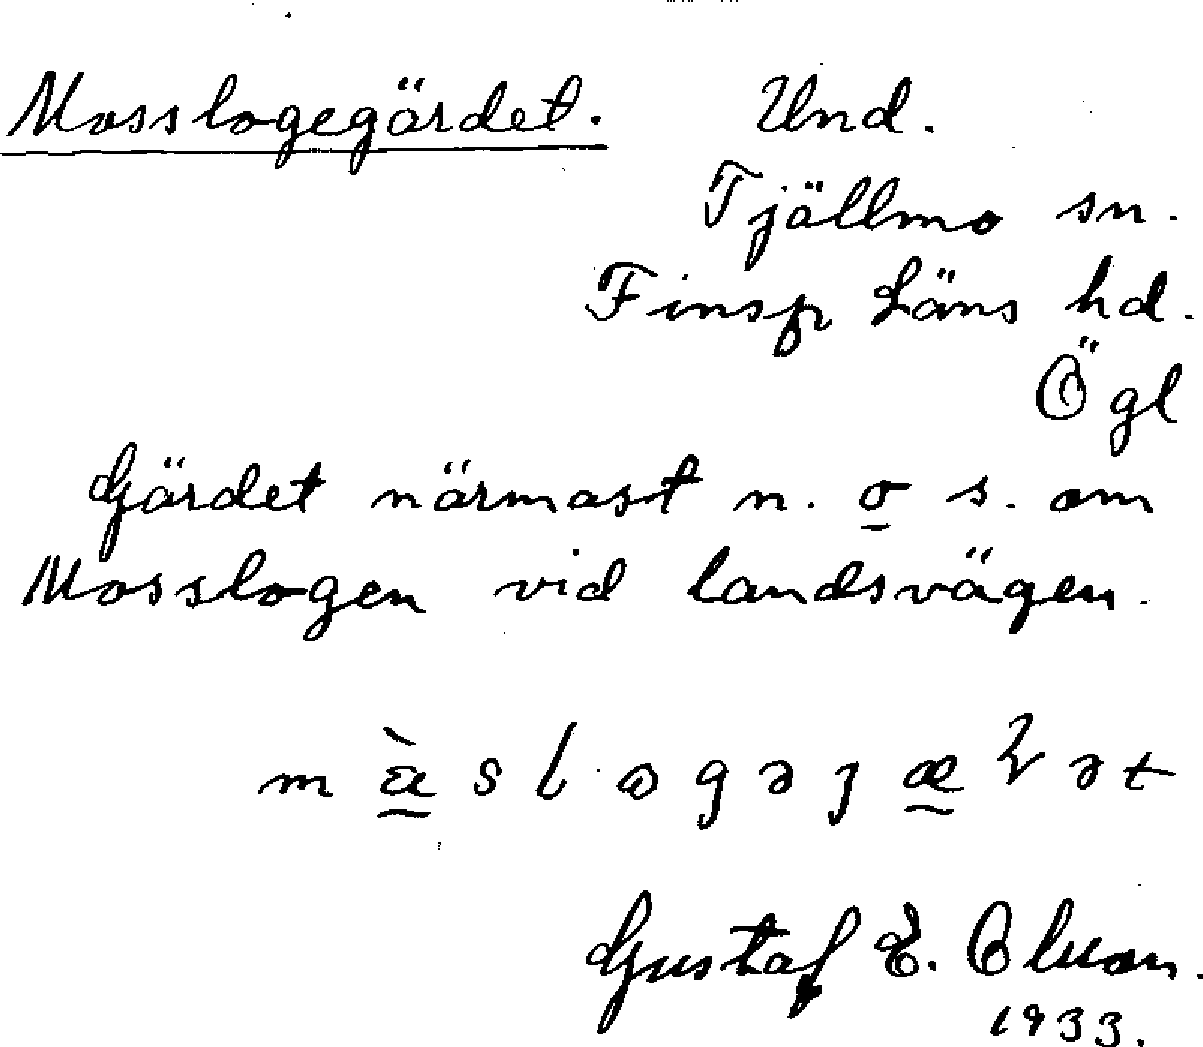 Mosslogegärdet. Und.
Tjällmo sn.
Finsp Läns hd.
Ögl
Gärdet närmast n. o s. om
Mosslogen vid landsvägen.
Gustaf E.
1933.